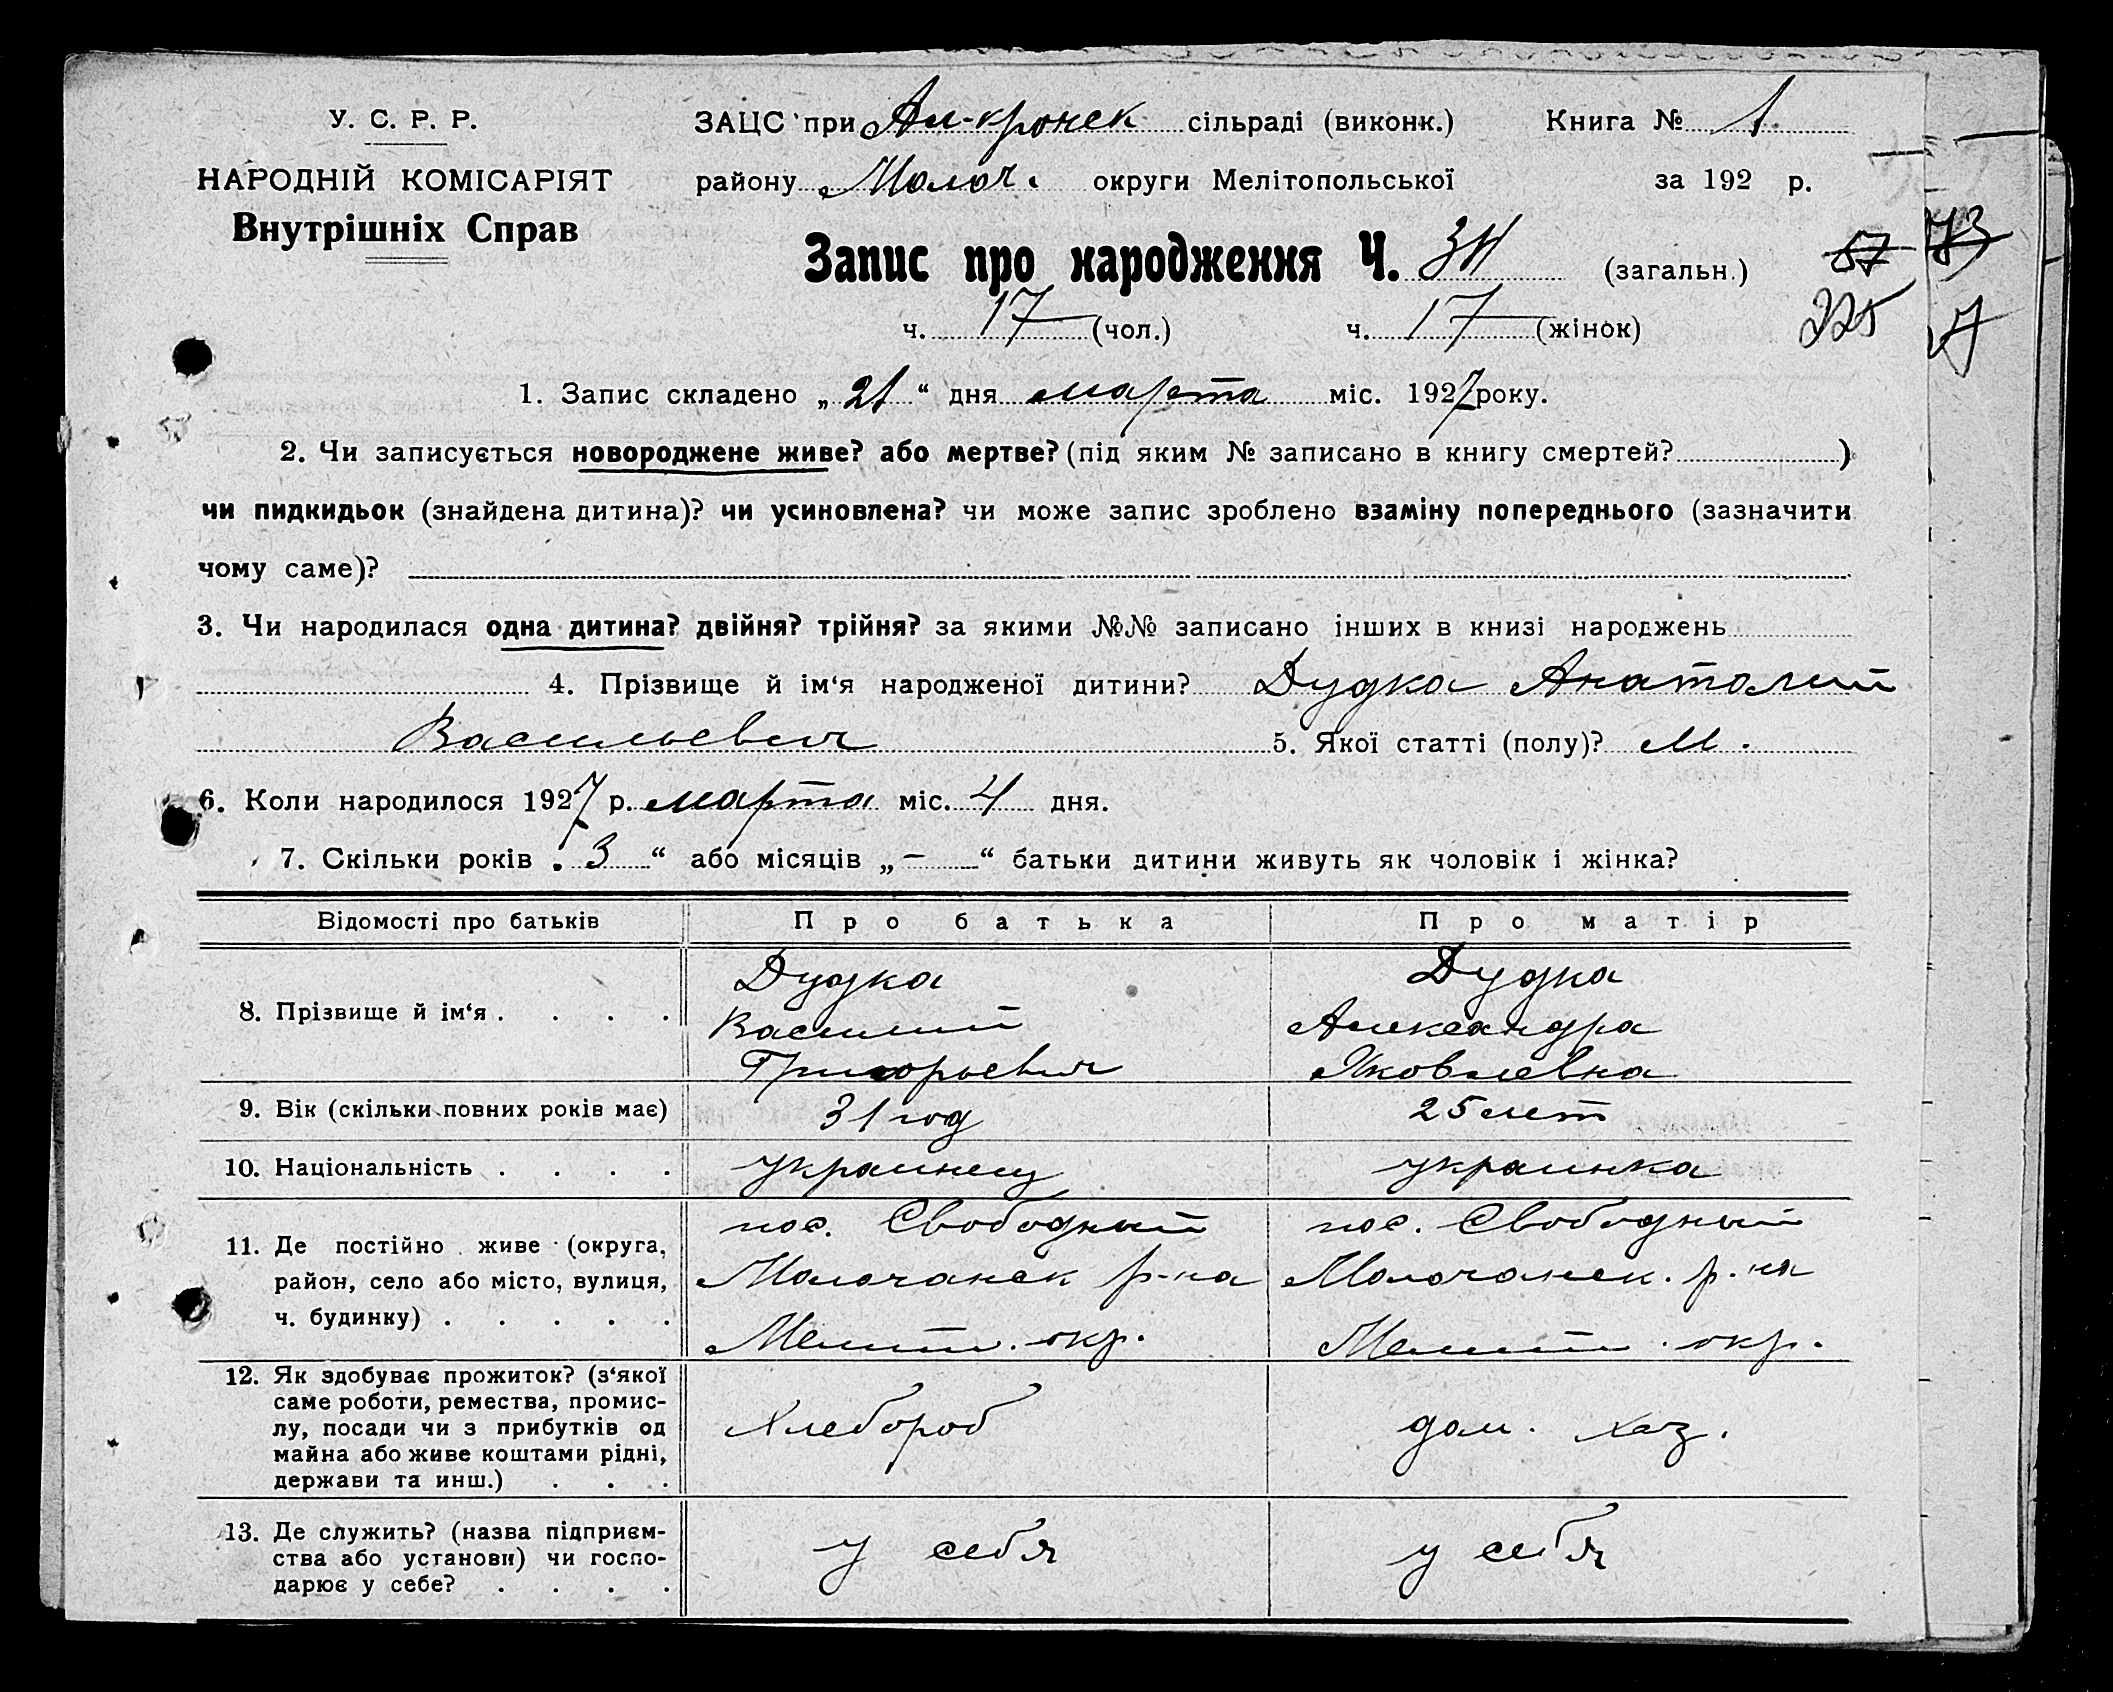 У. С. Р. Р.
НАРОДНІЙ КОМІСАРІЯТ
Внутрішніх Справ
ЗАЦС при Ал-кронск сільраді (виконк.) Книга № 1
району Молоч. округи Мелітопольської за 192 р.
Запис про народження Ч. 34 (загальн.) 57 73
ч. 17 (чол.) ч. 17 (жінок) 225
1. Запис складено „ 21 “ дня марта міс. 1927 року.
2. Чи записується новороджене живе? або мертве? (під яким № записано в книгу смертей? )
чи пидкидьок (знайдена дитина)? чи усиновлена? чи може запис зроблено взаміну попереднього (зазначити
чому саме)?
3. Чи народилася одна дитина? двійня? трійня? за якими №№ записано інших в книзі народжень
4. Прізвище й ім‘я народженої дитини? Дудка Анатолий
Васильевич 5. Якої статті (полу)? М.
6. Коли народилося 1927 р. марта міс. 4 дня.
7. Скільки років „ 3 “ або місяців „ — “ батьки дитини живуть як чоловік і жінка?
Відомості про батьків Про батька Про матір
8. Прізвище й ім‘я . . . .
Дудка
Василий
Григорьевич
Дудка
Александра
Яковлевна
9. Вік (скільки повних років має) 31 год 25 лет
10. Національність . . . . украинец украинка
11. Де постійно живе (округа,
район, село або місто, вулиця,
ч. будинку) . . . . .
пос. Свободный
Молочанск р-на
Мелит. окр.
пос. Свободный
Молочанск. р-на
Мелит. окр.
12. Як здобуває прожиток? (з‘якої
саме роботи, ремества, промис-
лу, посади чи з прибутків од
майна або живе коштами рідні,
держави та инш.) . . .
Хлебороб
дом. хаз.
13. Де служить? (назва підприєм-
ства або установи) чи госпо-
дарює у себе? . . . .
у себя
у себя